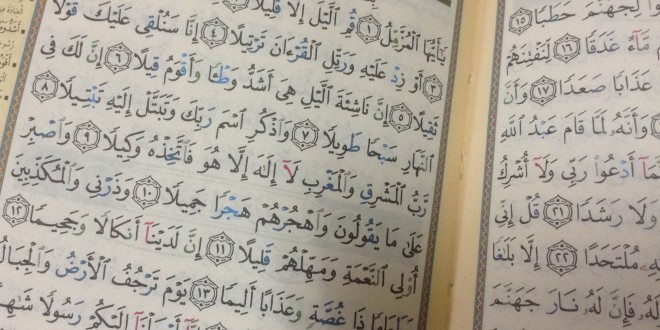 لِجَهَنَّمَ حَطَبًا ١٥
مَّآءً غَدَقًا ١٦ لِّنَفْتِنَهُمْ
عَذَابًا صَعَدًا ١٧ وَأَنَّ
وَأَنَّهُۥ لَمَّا قَامَ عَبْدُ ٱللَّهِ
أَدْعُوا۟ رَبِّى وَلَآ أُشْرِكُ
وَلَا رَشَدًا ٢١ قُلْ إِنِّى
مُلْتَحَدًا ٢٢ إِلَّا بَلَٰغًا
فَإِنَّ لَهُۥ نَارَ جَهَنَّمَ
يَٰٓأَيُّهَا ٱلْمُزَّمِّلُ ١ قُمِ ٱلَّيْلَ إِلَّا قَلِيلًا
٣ أَوْ زِدْ عَلَيْهِ وَرَتِّلِ ٱلْقُرْءَانَ تَرْتِيلًا ٤ إِنَّا سَنُلْقِى عَلَيْكَ قَوْلًا
ثَقِيلًا ٥ إِنَّ نَاشِئَةَ ٱلَّيْلِ هِىَ أَشَدُّ وَطْـًٔا وَأَقْوَمُ قِيلًا ٦ إِنَّ لَكَ فِى
ٱلنَّهَارِ سَبْحًا طَوِيلًا ٧ وَٱذْكُرِ ٱسْمَ رَبِّكَ وَتَبَتَّلْ إِلَيْهِ تَبْتِيلًا ٨
رَّبُّ ٱلْمَشْرِقِ وَٱلْمَغْرِبِ لَآ إِلَٰهَ إِلَّا هُوَ فَٱتَّخِذْهُ وَكِيلًا ٩ وَٱصْبِرْ
عَلَىٰ مَا يَقُولُونَ وَٱهْجُرْهُمْ هَجْرًا جَمِيلًا ١٠ وَذَرْنِى وَٱلْمُكَذِّبِينَ
أُو۟لِى ٱلنَّعْمَةِ وَمَهِّلْهُمْ قَلِيلًا ١١ إِنَّ لَدَيْنَآ أَنكَالًا وَجَحِيمًا ١٢
وَطَعَامًا ذَا غُصَّةٍ وَعَذَابًا أَلِيمًا ١٣ يَوْمَ تَرْجُفُ ٱلْأَرْضُ وَٱلْجِبَالُ
أَرْسَلْنَآ إِلَيْكُمْ رَسُولًا